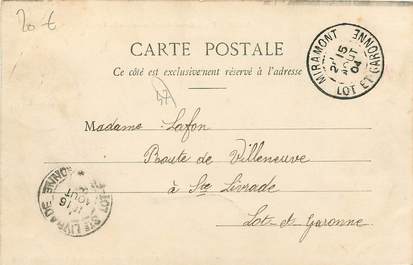 20 €
MIRAMONT
LOT ET GARONNE
15
AOUT
04
CARTE POSTALE
Ce côté est exclusivement réservé à l'adresse
Madame Lafon
Route de Villeneuve
à Ste Livrade
Lot-et-Garonne
STE LIVRADE
LOT
16
AOUT